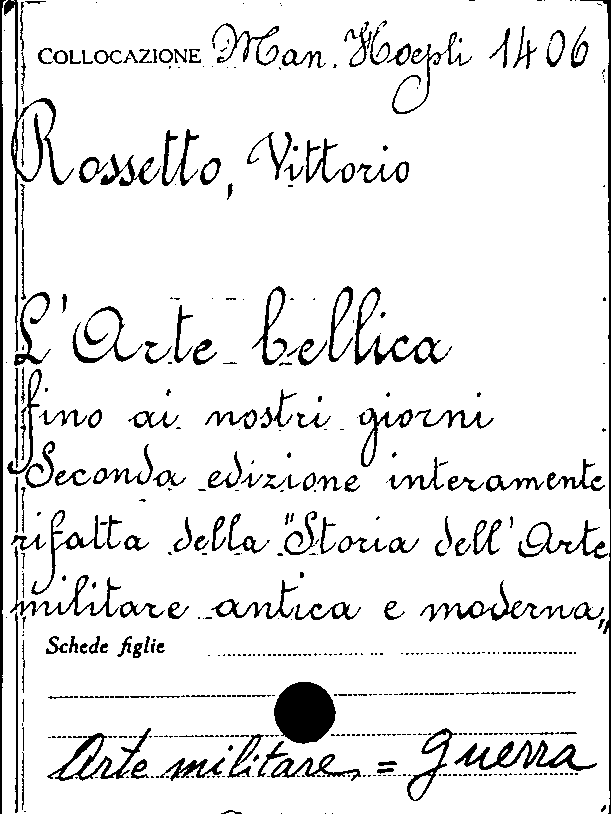 COLLOCAZIONE Man. Hoepli 1406
Rossetto, Vittorio
L'Arte bellica
fino ai nostri giorni
Seconda edizione interamente
rifatta della "Storia dell'Arte
militare antica e moderna„
Schede figlie
Arte militare, = Guerra